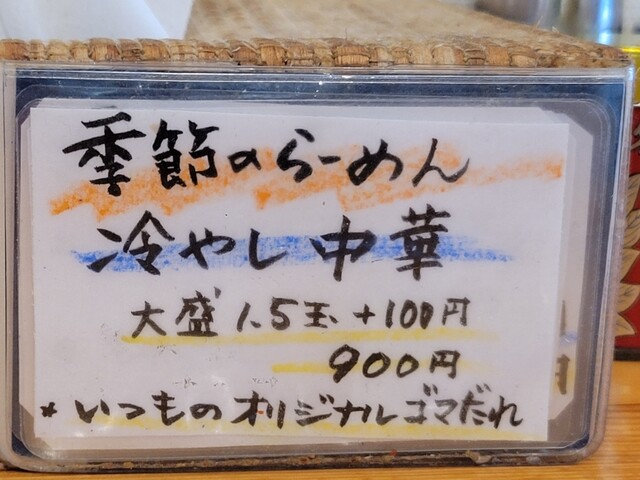 季節のらーめん
冷やし中華
大盛 1.5玉 +100円
900円
* いつものオリジナルゴマだれ